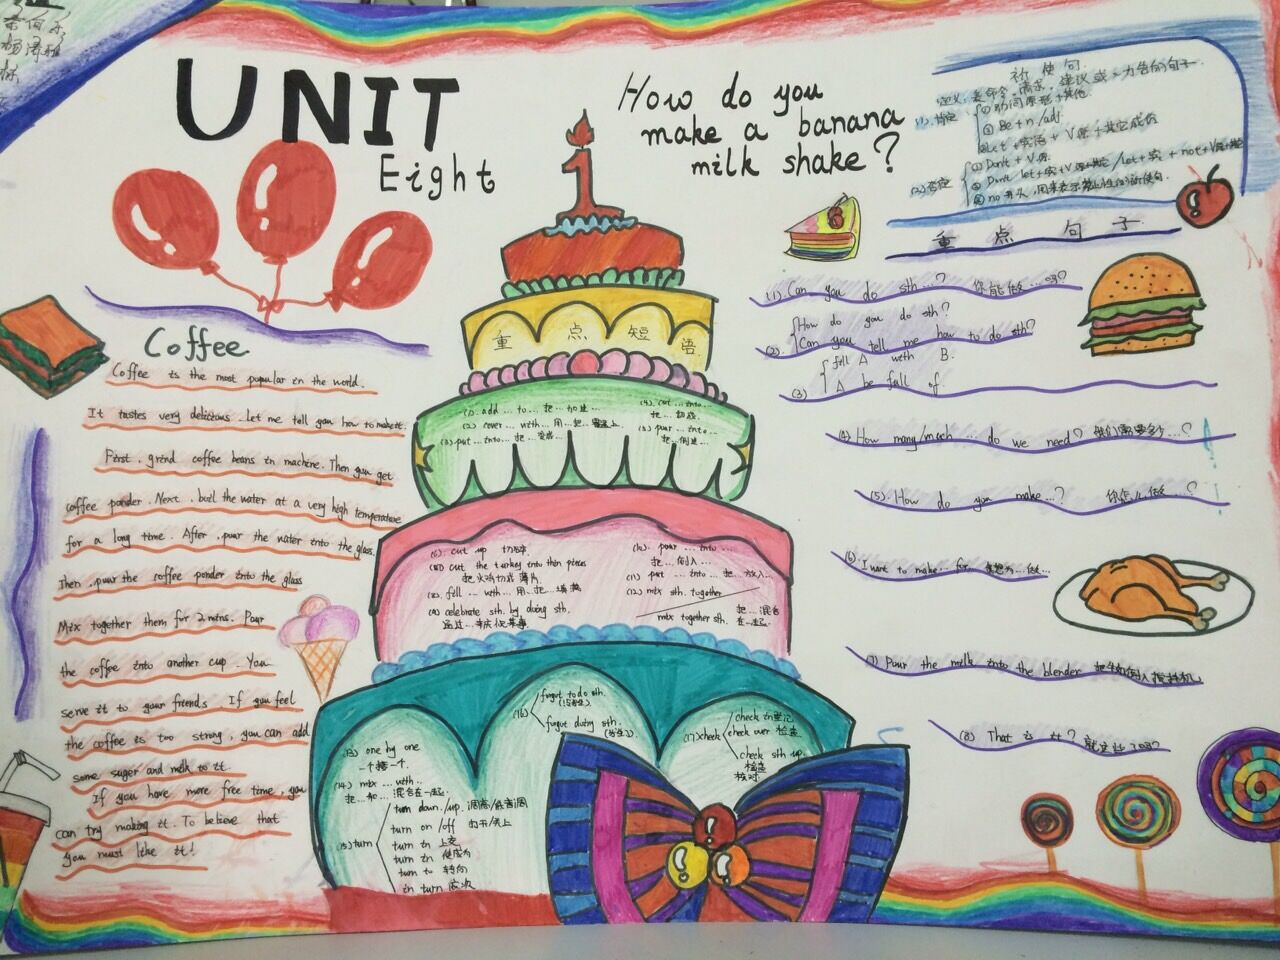 UNIT
Eight
How do you
make a banana
milk shake?
祈使句
定义: 表命令、请求、建议或
(1). 肯定
① 动词原形+其他.
② Be + n /adj.
+ V原 + 其它成份
(2). 否定
① Don't + V原
② Don't let + 宾 + V原+其它 / let + 宾 + not + V原+其它
③ no 开头, 用来表示禁止性的祈使句.
重点句子
(1). Can you do sth...? 你能做...吗?
(2). How do you do sth?
Can you tell me how to do sth?
(3) fill A with B.
A be full of
(4) How many/much ... do we need? 我们需要多少...?
(5). How do you make...? 你怎么做...?
(6). I want to make... for
(7) Pour the milk into the blender 把牛奶倒入搅拌机
(8). That is it? 就这些了吗?
Coffee
Coffee is the most popular in the world.
It tastes very delicious. Let me tell you how to make it.
First, grind coffee beans in machine. Then you get
coffee ponder. Next, boil the water at a very high temperature
for a long time. After, pour the water into the glass.
Then, pour the coffee ponder into the glass
Mix together them for 2 mins. Pour
the coffee into another cup. You
serve it to your friends. If you feel
the coffee is too strong, you can add
some suger and milk to it.
If you have more free time, you
can try making it. To believe that
you must like it!
1
重点短语
(1). add ... to ... 把...加进...
(2). cover ... with ... 用...把...覆盖上
(3). put ... into ... 把...变成...
(4). cut ... into ...
把...切成.
(5). pour ... into ...
把...倒进...
(6). cut up 切碎.
cut the turkey into thin pieces
把火鸡切成薄片.
(8). fill ... with ... 用...把...填满
(9) celebrate sth. by doing sth.
通过...来庆祝某事
(10). pour ... into ...
把...倒入...
(11). put ... into ... 把...放入...
(12). mix sth. together
mix together sth. 把...混合
在一起.
(13). one by one
一个接一个.
(14). mix ... with ...
把...和...混合在一起.
(15) turn
turn down /up 调高/低音调
turn on /off 打开/关上
turn in 上交
turn in 变成为
turn to 转向
in turn 依次
(16) forgot to do sth.
forgot doing sth.
(17) check
check in 登记
check over 检查
check sth up.
检查
核对